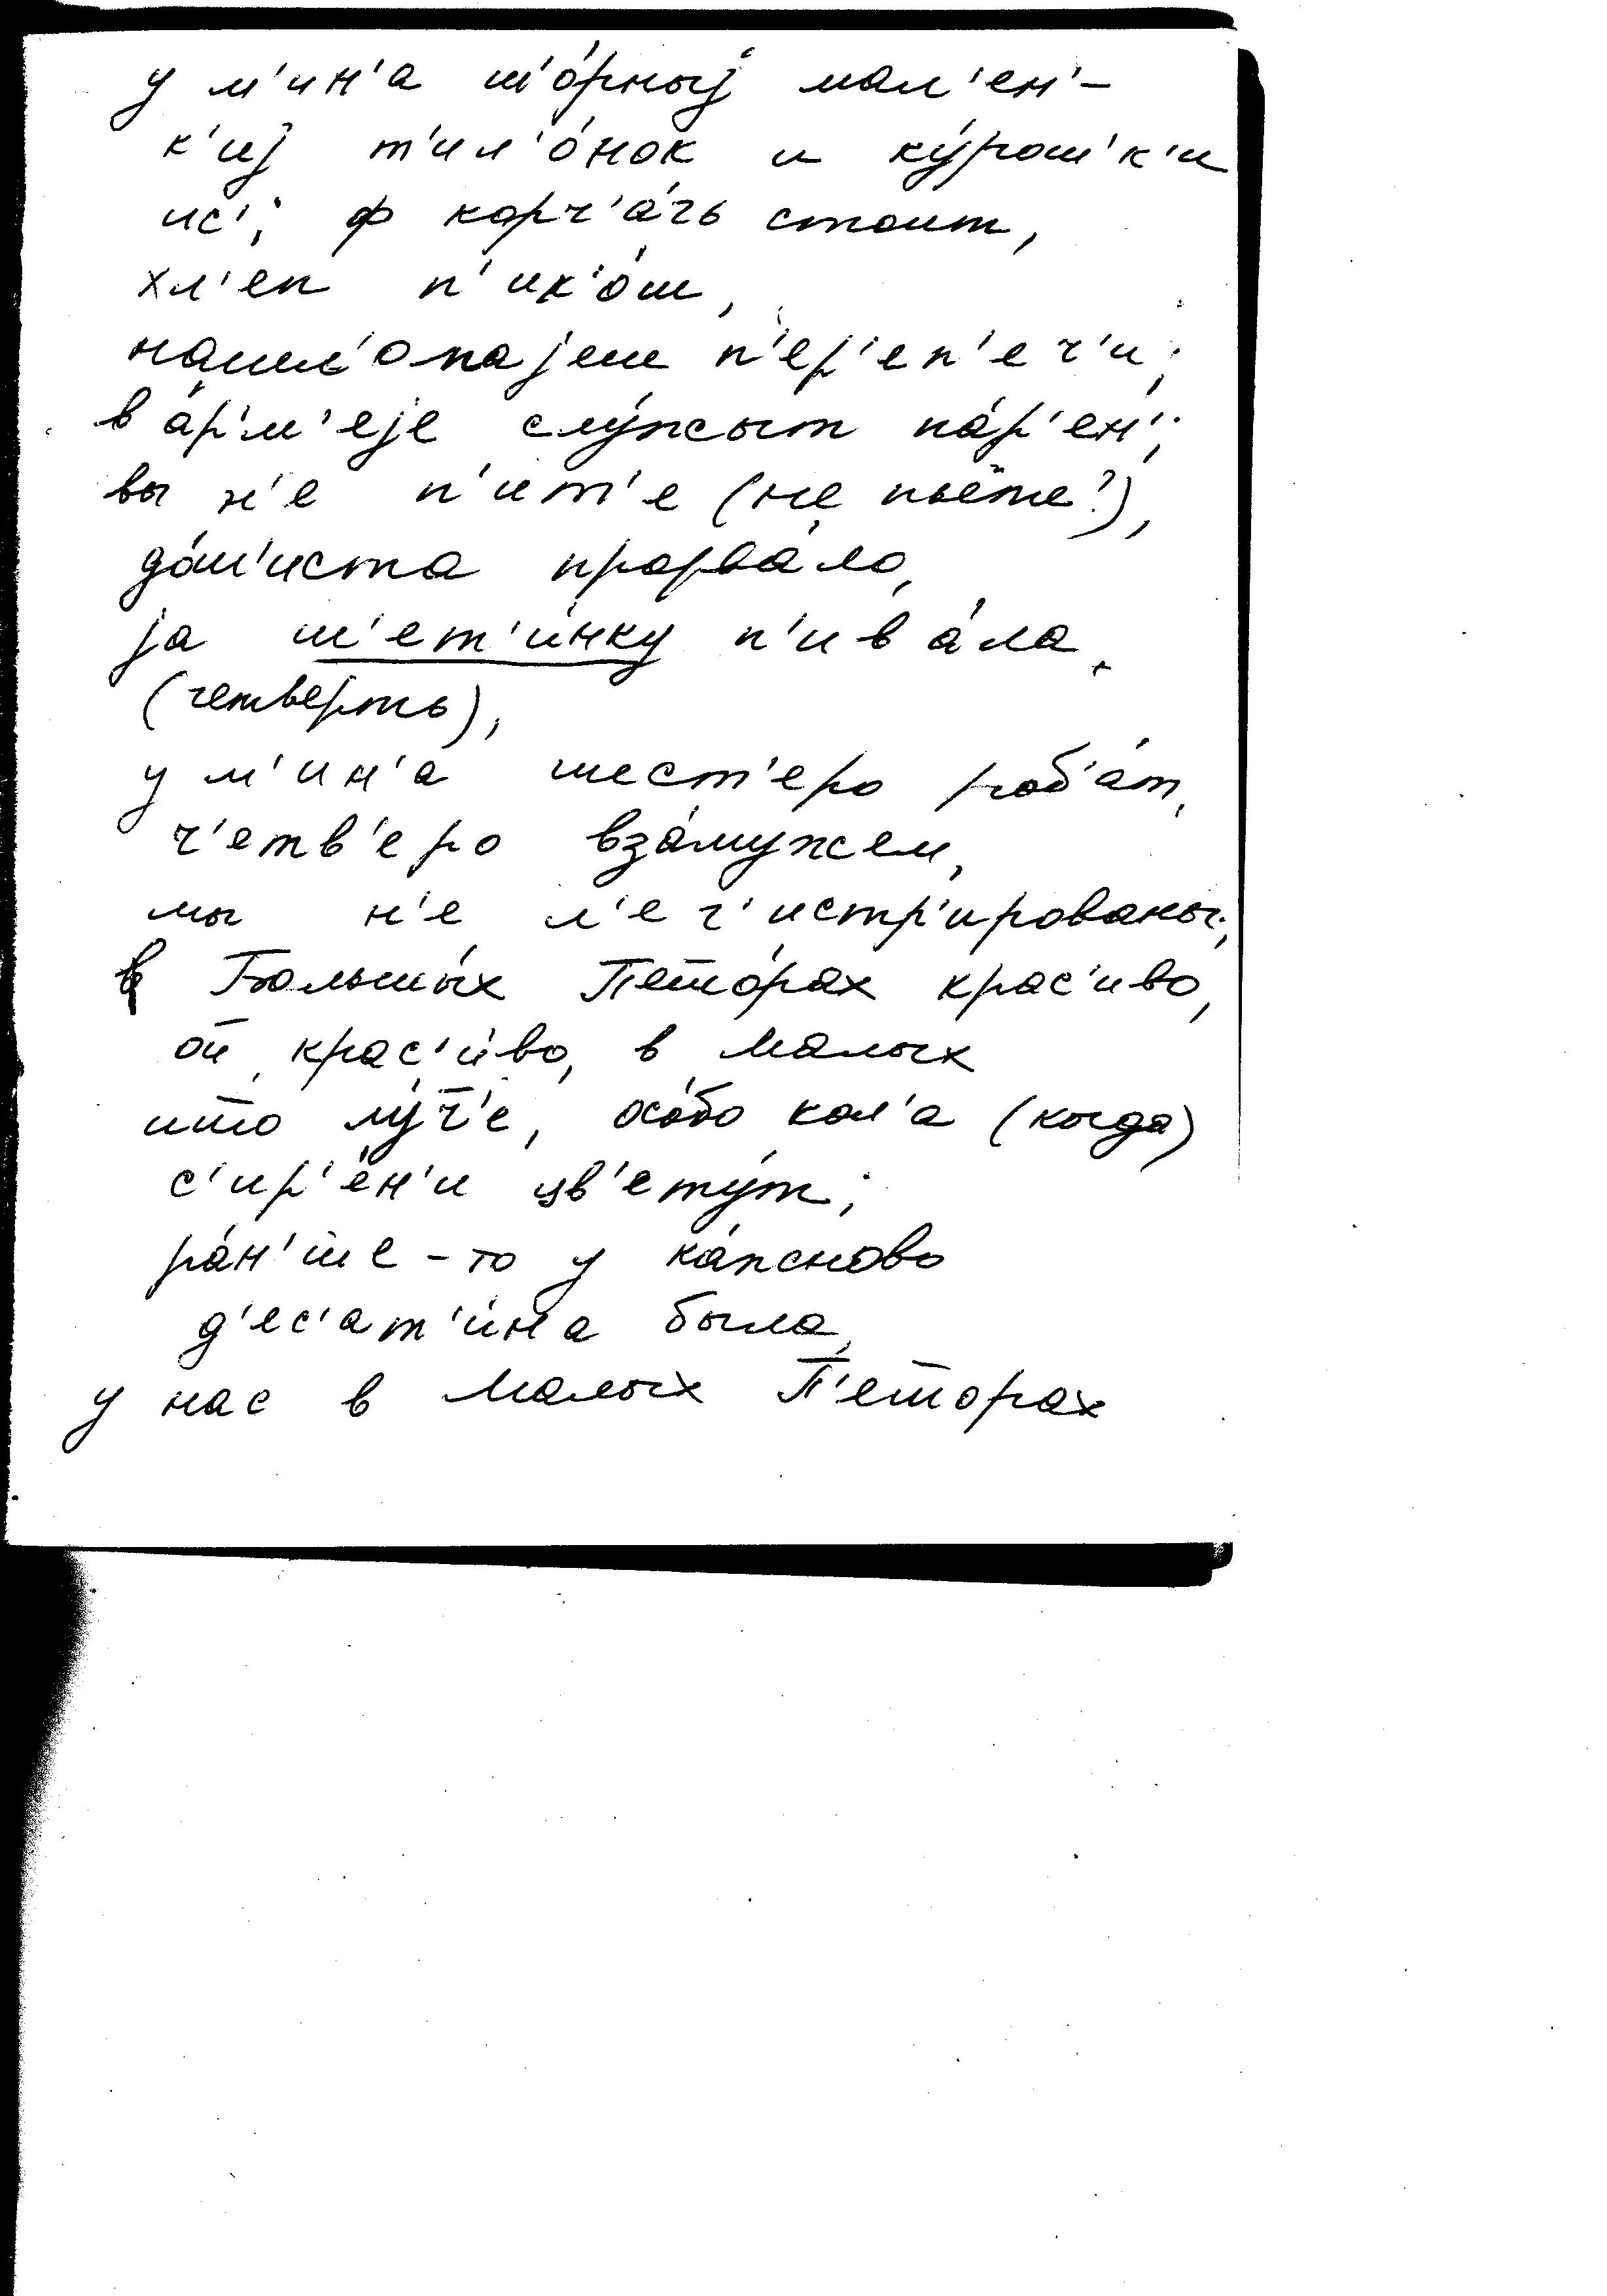 у м'ин'а ш'о́рныj мал'ен'-
к'иj т'ил'о́нок и ку́рош'к'и
ис'; ф корч'а́гь стоит,
хл'еп п'ик'о́ш,
нашл'опаjеш п'ер'еп'еч'и;
в а́рм'еjе слу́жыт па́р'ен';
вы н'е п'ит'е (не пьёте?),
до́ш'иста прорва́ло,
jа ш'ет'и́нку п'ива́ла
(четверть),
у м'ин'а шест'еро роб'а́т,
ч'етв'еро вза́мужем,
мы н'е л'ег'истр'ированы;
в Больши́х Пето́рах крас'иво,
ой, крас'и́во, в Малых
што лу́ч'е, осо́бо кол'а (когда)
с'ир'е́н'и цв'ету́т;
ра́н'ше-то у ка́жново
д'ес'ат'и́на была,
у нас в Малых П'еторах